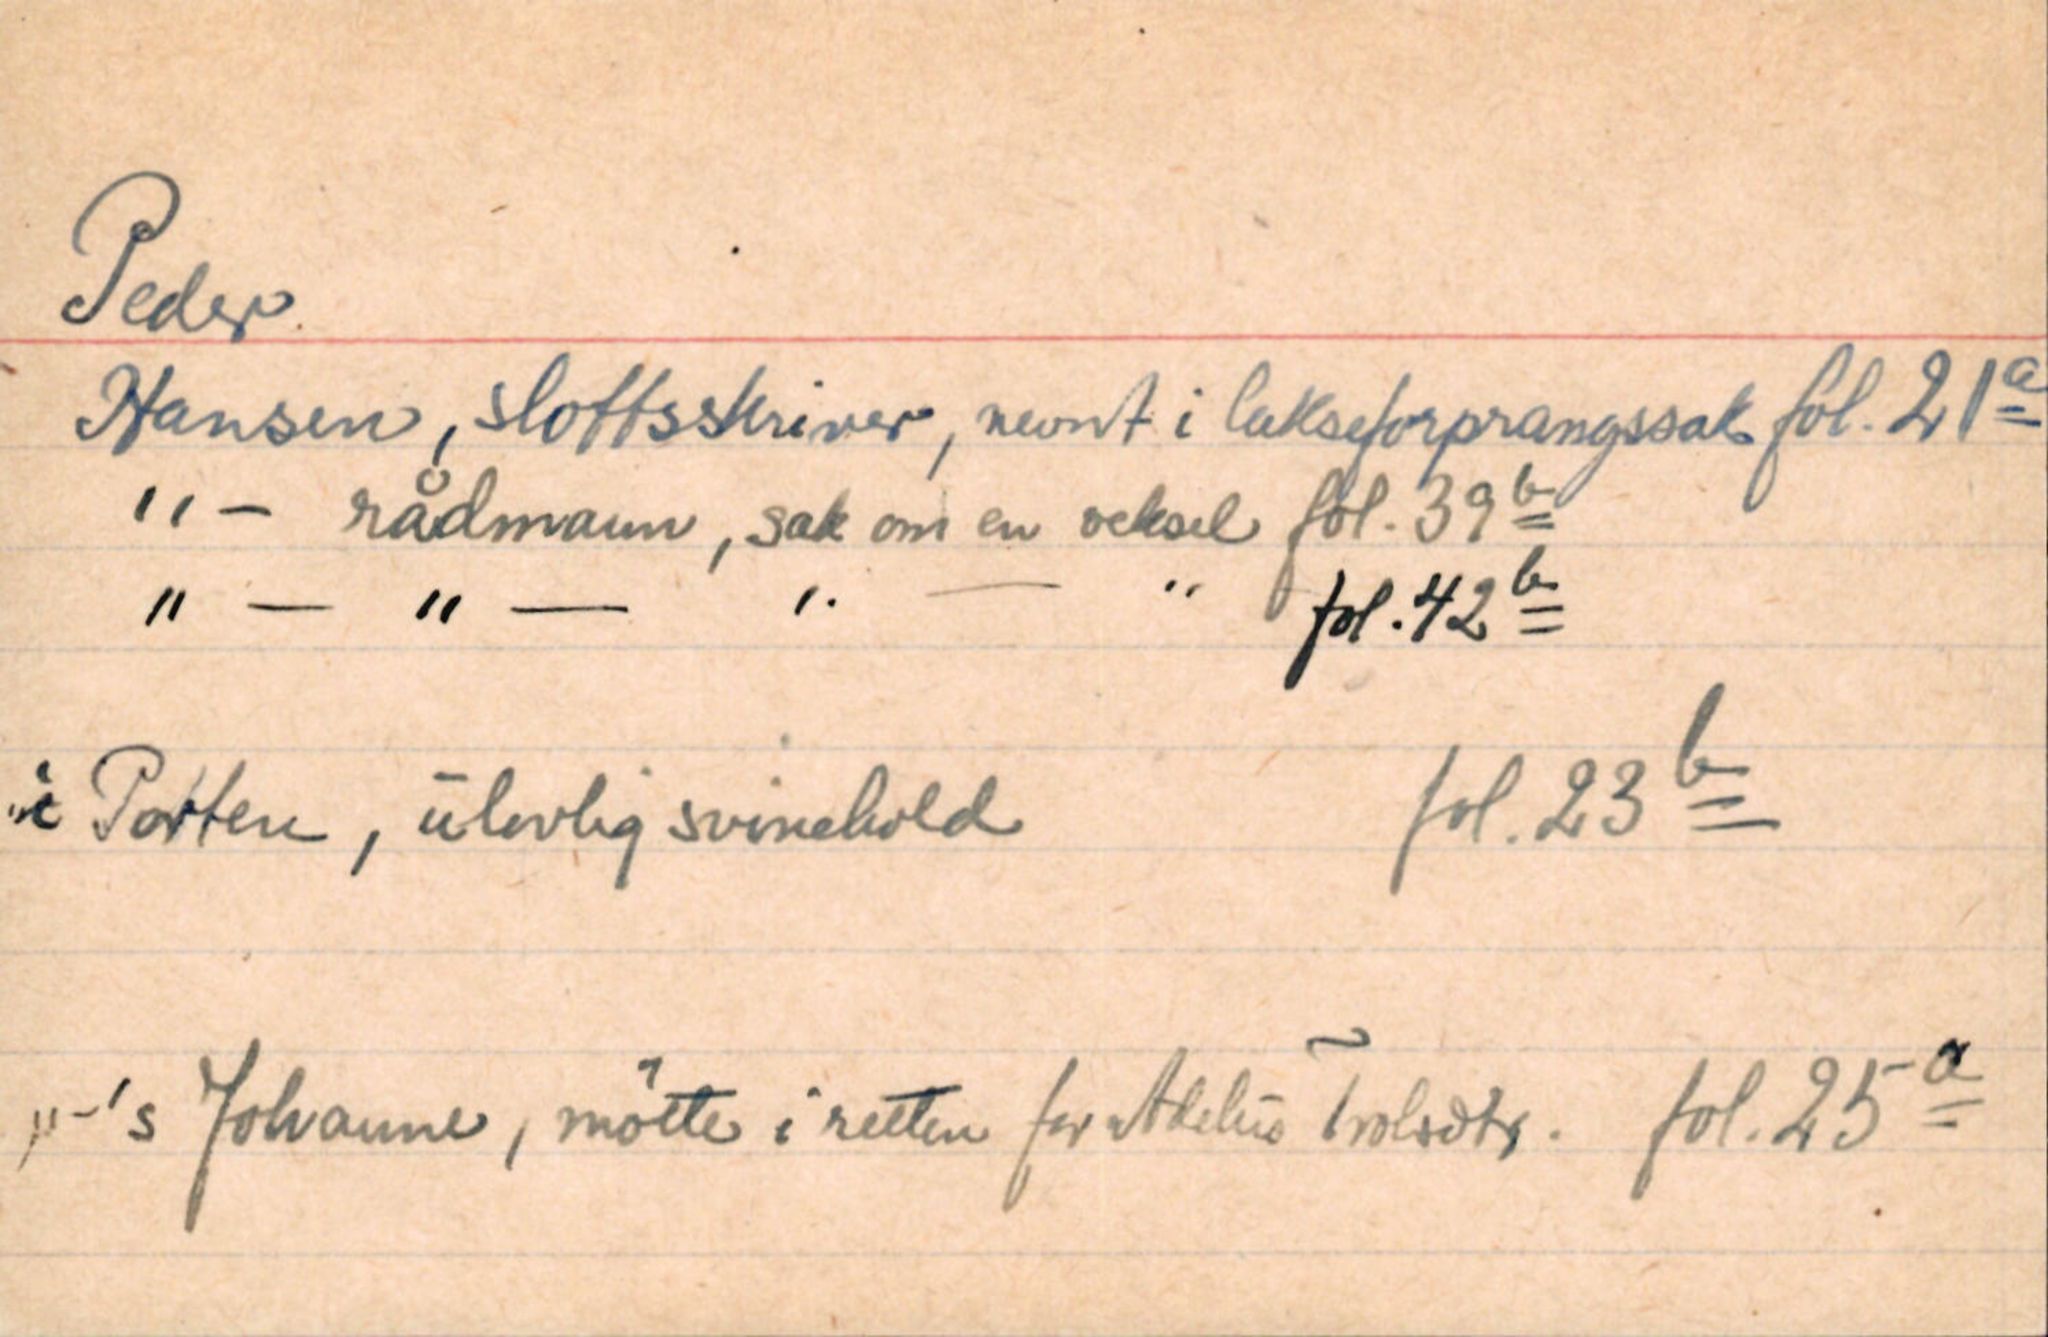 Peder
Hansen, slottsskriver, nevnt i lakseforprangssak fol. 21a
" - rådmann, sak om en veksel fol. 39b
" — " — " — " fol. 42b
i Porten, ulovlig svinehold fol. 23b
" - 's Johanne, mötte i retten for Adelus Trolsdtr. fol. 25a